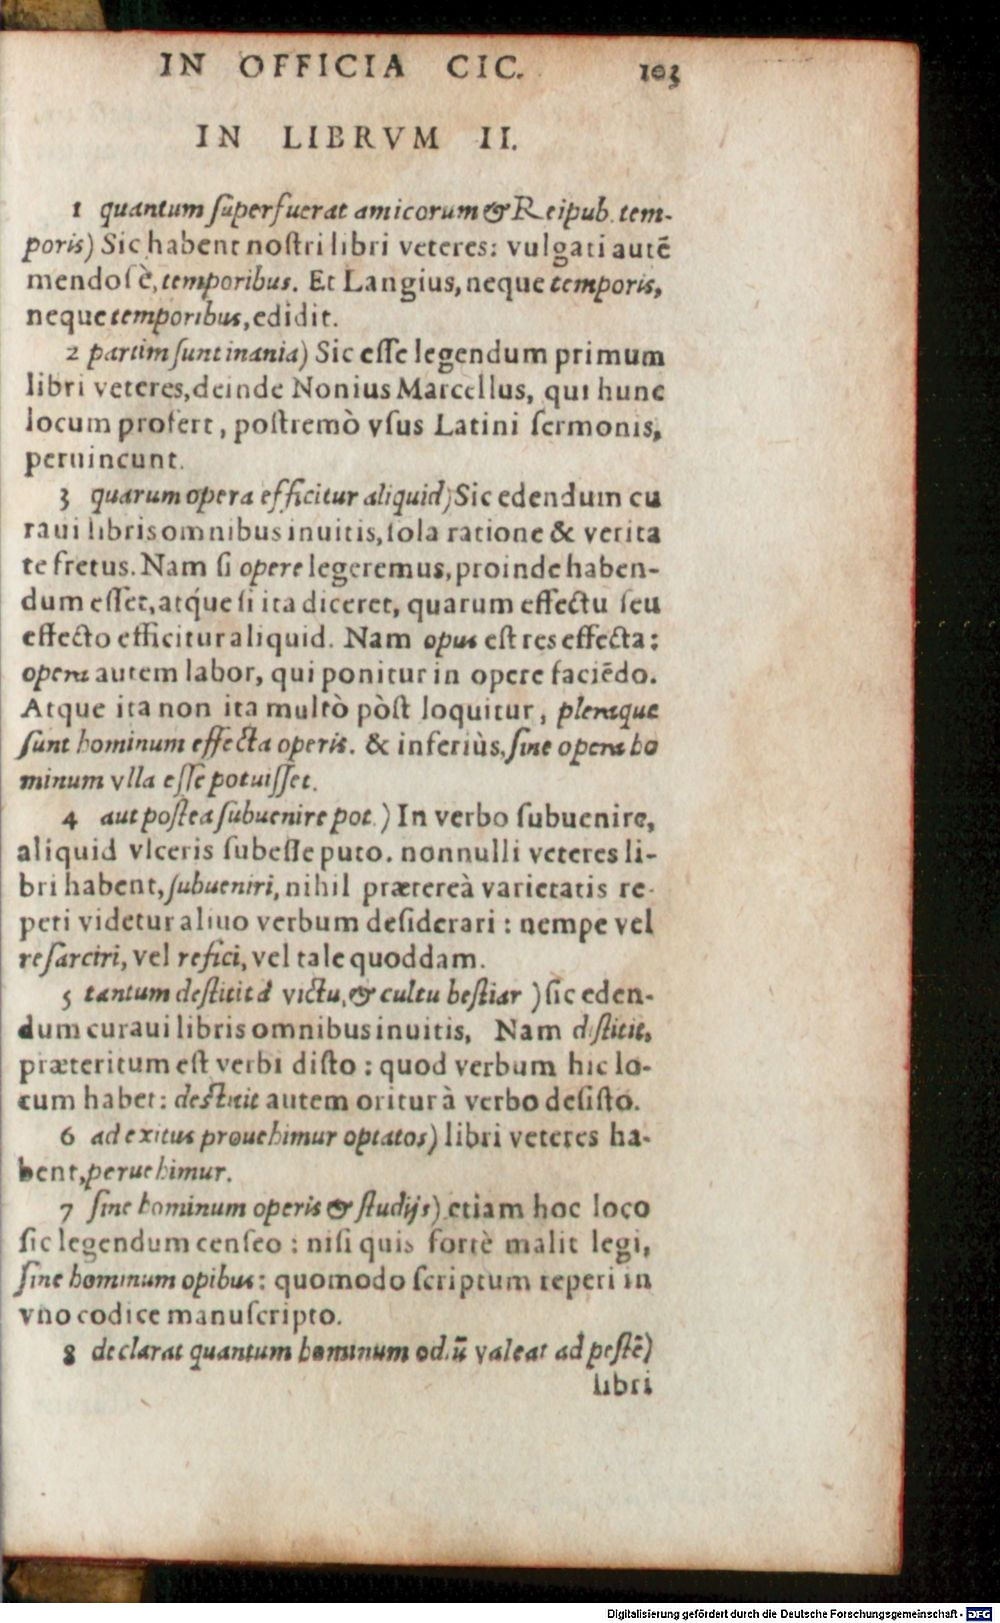 IN OFFICIA CIC. 103
IN LIBRVM II.
1 quantum ſuperfuerat amicorum & Reipub. tem-
poris) Sic habent noſtri libri veteres: vulgati autē
mendoſè, temporibus. Et Langius, neque temporis,
neque temporibus, edidit.
2 partim ſunt inania) Sic eſſe legendum primum
libri veteres, deinde Nonius Marcellus, qui hunc
locum profert, poſtremò vſus Latini ſermonis,
peruincunt.
3 quarum opera efficitur aliquid) Sic edendum cu
raui libris omnibus inuitis, ſola ratione & verita
te fretus. Nam ſi opere legeremus, proinde haben-
dum eſſet, atque ſi ita diceret, quarum effectu ſeu
effecto efficitur aliquid. Nam opus eſt res effecta:
opera autem labor, qui ponitur in opere faciēdo.
Atque ita non ita multò pòſt loquitur, pleraque
ſunt hominum effecta operis. & inferiùs, ſine opera ho
minum vlla eſſe potuiſſet.
4 aut poſtea ſubuenire pot.) In verbo ſubuenire,
aliquid vlceris ſubeſſe puto. nonnulli veteres li-
bri habent, ſubueniri, nihil prætereà varietatis re-
peri videtur aliuo verbum deſiderari: nempe vel
reſarciri, vel refici, vel tale quoddam.
5 tantum deſtitit à victu, & cultu beſtiar) ſic eden-
dum curaui libris omnibus inuitis, Nam diſtitit,
præteritum eſt verbi diſto: quod verbum hic lo-
cum habet: deſtitit autem oritur à verbo deſiſto.
6 ad exitus prouehimur optatos) libri veteres ha-
bent, peruehimur.
7 ſine hominum operis & ſtudijs) etiam hoc loco
ſic legendum cenſeo: niſi quis fortè malit legi,
ſine hominum opibus: quomodo ſcriptum reperi in
vno codice manuſcripto.
8 declarat quantum hominum odiū valeat ad peſtē)
libri
Digitalisierung gefördert durch die Deutsche Forschungsgemeinschaft - DFG